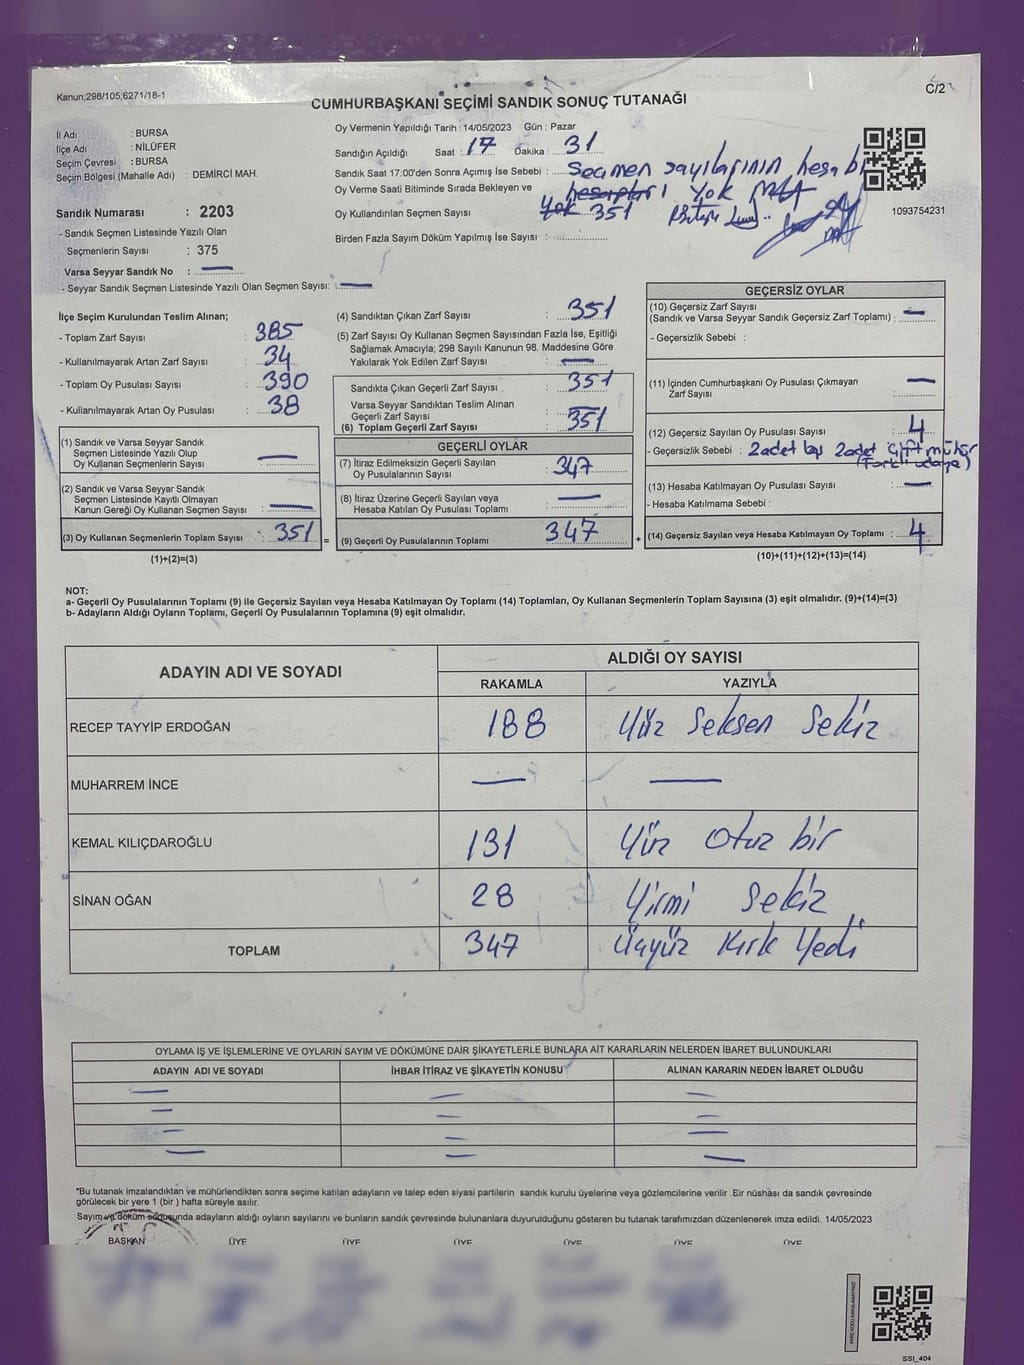 Kanun;298/105,6271/18-1
C/2
CUMHURBAŞKANI SEÇİMİ SANDIK SONUÇ TUTANAĞI
İl Adı : BURSA
İlçe Adı : NİLÜFER
Seçim Çevresi : BURSA
Seçim Bölgesi (Mahalle Adı) : DEMİRCİ MAH.
Sandık Numarası : 2203
- Sandık Seçmen Listesinde Yazılı Olan
Seçmenlerin Sayısı : 375
Varsa Seyyar Sandık No : —
- Seyyar Sandık Seçmen Listesinde Yazılı Olan Seçmen Sayısı: —
Oy Vermenin Yapıldığı Tarih : 14/05/2023 Gün : Pazar
Sandığın Açıldığı Saat : 17 Dakika : 31
Sandık Saat 17:00'den Sonra Açımış İse Sebebi : Seçmen sayılarının hesabı
Oy Verme Saati Bitiminde Sırada Bekleyen ve hesapları Yok
Oy Kullandırılan Seçmen Sayısı yok 351
Birden Fazla Sayım Döküm Yapılmış İse Sayısı :
1093754231
İlçe Seçim Kurulundan Teslim Alınan;
- Toplam Zarf Sayısı : 385
- Kullanılmayarak Artan Zarf Sayısı : 34
- Toplam Oy Pusulası Sayısı : 390
- Kullanılmayarak Artan Oy Pusulası : 38
(1) Sandık ve Varsa Seyyar Sandık
Seçmen Listesinde Yazılı Olup
Oy Kullanan Seçmenlerin Sayısı : —
(2) Sandık ve Varsa Seyyar Sandık
Seçmen Listesinde Kayıtlı Olmayan
Kanun Gereği Oy Kullanan Seçmen Sayısı : —
(3) Oy Kullanan Seçmenlerin Toplam Sayısı : 351 =
(1)+(2)=(3)
(4) Sandıktan Çıkan Zarf Sayısı : 351
(5) Zarf Sayısı Oy Kullanan Seçmen Sayısından Fazla İse, Eşitliği
Sağlamak Amacıyla; 298 Sayılı Kanunun 98. Maddesine Göre
Yakılarak Yok Edilen Zarf Sayısı : —
Sandıkta Çıkan Geçerli Zarf Sayısı : 351
Varsa Seyyar Sandıktan Teslim Alınan
Geçerli Zarf Sayısı
(6) Toplam Geçerli Zarf Sayısı : 351
GEÇERLİ OYLAR
(7) İtiraz Edilmeksizin Geçerli Sayılan
Oy Pusulalarının Sayısı : 347
(8) İtiraz Üzerine Geçerli Sayılan veya
Hesaba Katılan Oy Pusulası Toplamı : —
(9) Geçerli Oy Pusulalarının Toplamı : 347 +
GEÇERSİZ OYLAR
(10) Geçersiz Zarf Sayısı
(Sandık ve Varsa Seyyar Sandık Geçersiz Zarf Toplamı) : —
- Geçersizlik Sebebi :
(11) İçinden Cumhurbaşkanı Oy Pusulası Çıkmayan
Zarf Sayısı : —
(12) Geçersiz Sayılan Oy Pusulası Sayısı : 4
- Geçersizlik Sebebi : 2 adet boş 2 adet çift mühür
(13) Hesaba Katılmayan Oy Pusulası Sayısı : —
- Hesaba Katılmama Sebebi :
(14) Geçersiz Sayılan veya Hesaba Katılmayan Oy Toplamı : 4
(10)+(11)+(12)+(13)=(14)
NOT:
a- Geçerli Oy Pusulalarının Toplamı (9) ile Geçersiz Sayılan veya Hesaba Katılmayan Oy Toplamı (14) Toplamları, Oy Kullanan Seçmenlerin Toplam Sayısına (3) eşit olmalıdır. (9)+(14)=(3)
b- Adayların Aldığı Oyların Toplamı, Geçerli Oy Pusulalarının Toplamına (9) eşit olmalıdır.
ADAYIN ADI VE SOYADI
ALDIĞI OY SAYISI
RAKAMLA YAZIYLA
RECEP TAYYİP ERDOĞAN 188 Yüz Seksen Sekiz
MUHARREM İNCE — —
KEMAL KILIÇDAROĞLU 131 Yüz Otuz bir
SİNAN OĞAN 28 Yirmi Sekiz
TOPLAM 347 Üçyüz Kırk Yedi
OYLAMA İŞ VE İŞLEMLERİNE VE OYLARIN SAYIM VE DÖKÜMÜNE DAİR ŞİKAYETLERLE BUNLARA AİT KARARLARIN NELERDEN İBARET BULUNDUKLARI
ADAYIN ADI VE SOYADI İHBAR İTİRAZ VE ŞİKAYETİN KONUSU ALINAN KARARIN NEDEN İBARET OLDUĞU
— — —
— — —
— — —
— — —
*Bu tutanak imzalandıktan ve mühürlendikten sonra seçime katılan adayların ve talep eden siyasi partilerin sandık kurulu üyelerine veya gözlemcilerine verilir .Bir nüshası da sandık çevresinde
görülecek bir yere 1 (bir ) hafta süreyle asılır.
Sayım ve döküm sonucunda adayların aldığı oyların sayılarını ve bunların sandık çevresinde bulunanlara duyurulduğunu gösteren bu tutanak tarafımızdan düzenlenerek imza edildi. 14/05/2023
BAŞKAN ÜYE ÜYE ÜYE ÜYE ÜYE ÜYE
SSİ_404